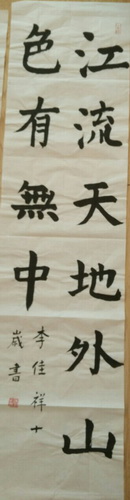 江流天地外山
色有無中
李佳祥十
歲書